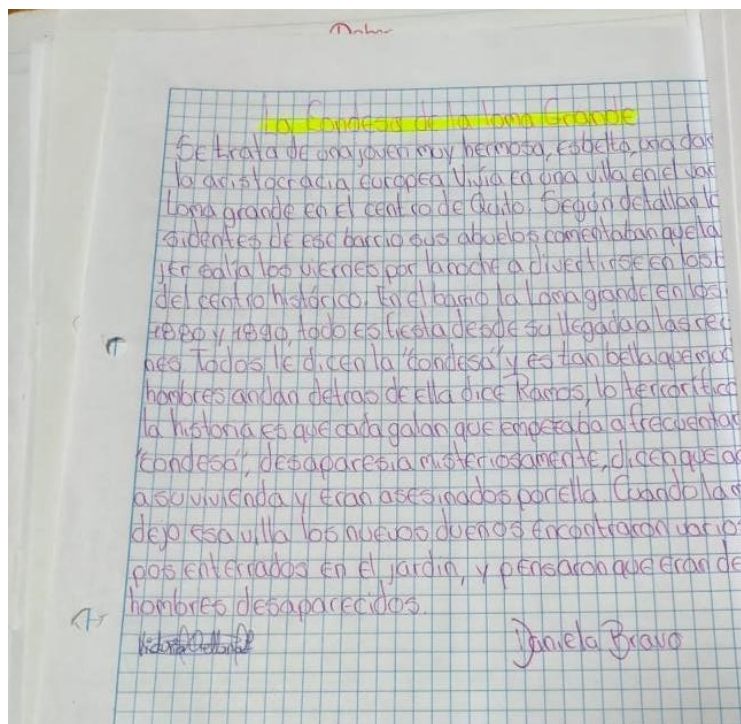 La Condesa de la loma Grande
Se trata de una joven muy hermosa, esbelta, una da
la aristocracia europea. Vivia en una villa en el
Loma grande en el centro de Quito. Según detallan
sidentes de ese barrio sus abuelos comentaban que la
jer salia los viernes por la noche a divertirse en los
del centro histórico. En el barrio la Loma grande en los
1880 y 1890, todo es fiesta desde su llegada a las
nes Todos le dicen la "condesa" y es tan bella que
hombres andan detras de ella dice Ramos, lo terrorifico
la historia es que cada galan que empezaba a frecuentar
"condesa", desaparesia misteriosamente, dicen que
a su vivienda y eran asesinados por ella. Cuando la
dejo esa villa los nuevos dueños encontraron vario
pos enterrados en el jardin, y pensaron que eran de
hombres desaparecidos.
Daniela Bravo